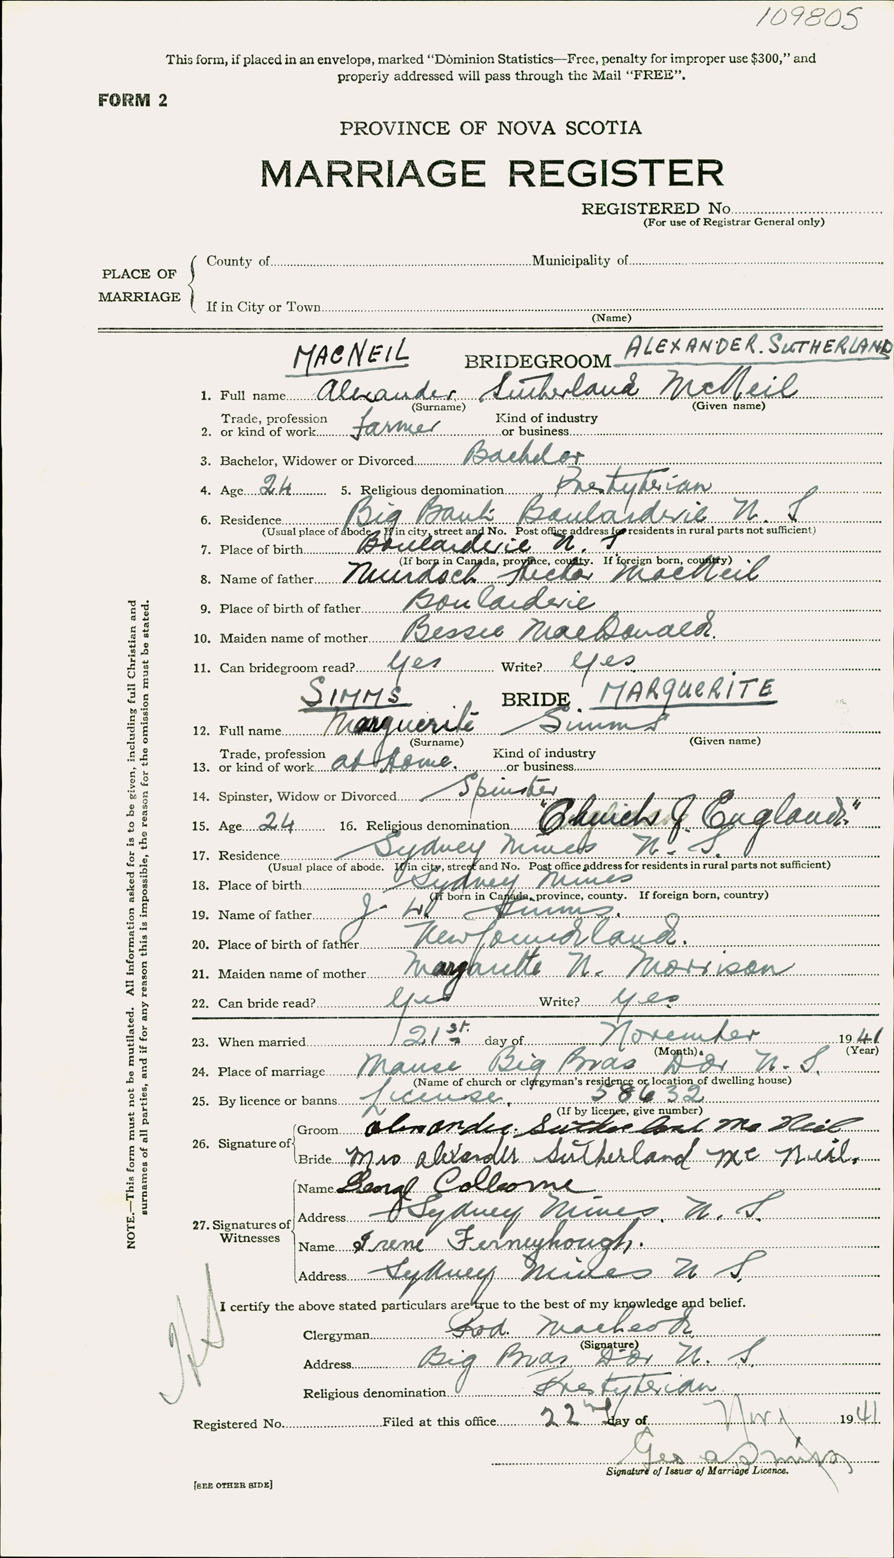 109805
This form, if placed in an envelope, marked "Dominion Statistics—Free, penalty for improper use $300," and
properly addressed will pass through the Mail "FREE".
FORM 2
PROVINCE OF NOVA SCOTIA
MARRIAGE REGISTER
REGISTERED No.
(For use of Registrar General only)
PLACE OF MARRIAGE
County of Municipality of
If in City or Town
(Name)
MACNEIL BRIDEGROOM ALEXANDER. SUTHERLAND
1. Full name Alexander Sutherland McNeil
(Surname) (Given name)
2. Trade, profession or kind of work farmer Kind of industry or business
3. Bachelor, Widower or Divorced Bachelor
4. Age 24 5. Religious denomination Presbyterian
6. Residence Big Bank Boularderie N. S
(Usual place of abode. If in city, street and No. Post office address for residents in rural parts not sufficient)
7. Place of birth Boularderie N. S
(If born in Canada, province, county. If foreign born, country)
8. Name of father Murdock Hector MacNeil
9. Place of birth of father Boularderie
10. Maiden name of mother Bessie MacDonald.
11. Can bridegroom read? Yes Write? Yes
SIMMS BRIDE MARQUERITE
12. Full name Marguerite Simms
(Surname) (Given name)
13. Trade, profession or kind of work at home. Kind of industry or business
14. Spinster, Widow or Divorced Spinster
15. Age 24 16. Religious denomination "Church of England."
17. Residence Sydney Mines N. S.
(Usual place of abode. If in city, street and No. Post office address for residents in rural parts not sufficient)
18. Place of birth Sydney Mines
(If born in Canada, province, county. If foreign born, country)
19. Name of father J W Simms.
20. Place of birth of father Newfoundland.
21. Maiden name of mother N. Morrison
22. Can bride read? Yes Write? Yes
23. When married 21st day of November 1941
(Month) (Year)
24. Place of marriage Manse Big Bras D'or N. S.
(Name of church or clergyman's residence or location of dwelling house)
25. By licence or banns License. 58632
(If by licence, give number)
26. Signature of
Groom Alexander Sutherland Mc Neil
Bride Mrs Alexander Sutherland Mc Neil.
27. Signatures of Witnesses
Name George
Address Sydney Mines. N. S.
Name Irene Ferneyhough.
Address Sydney Mines N S.
I certify the above stated particulars are true to the best of my knowledge and belief.
Clergyman Rod. MacLeod
(Signature)
Address Big Bras D'or N. S.
Religious denomination Presbyterian
Registered No. Filed at this office 22nd day of Nov 1941
Geo
Signature of Issuer of Marriage Licence.
[SEE OTHER SIDE]
NOTE.—This form must not be mutilated. All information asked for is to be given, including full Christian and
surnames of all parties, and if for any reason this is impossible, the reason for the omission must be stated.